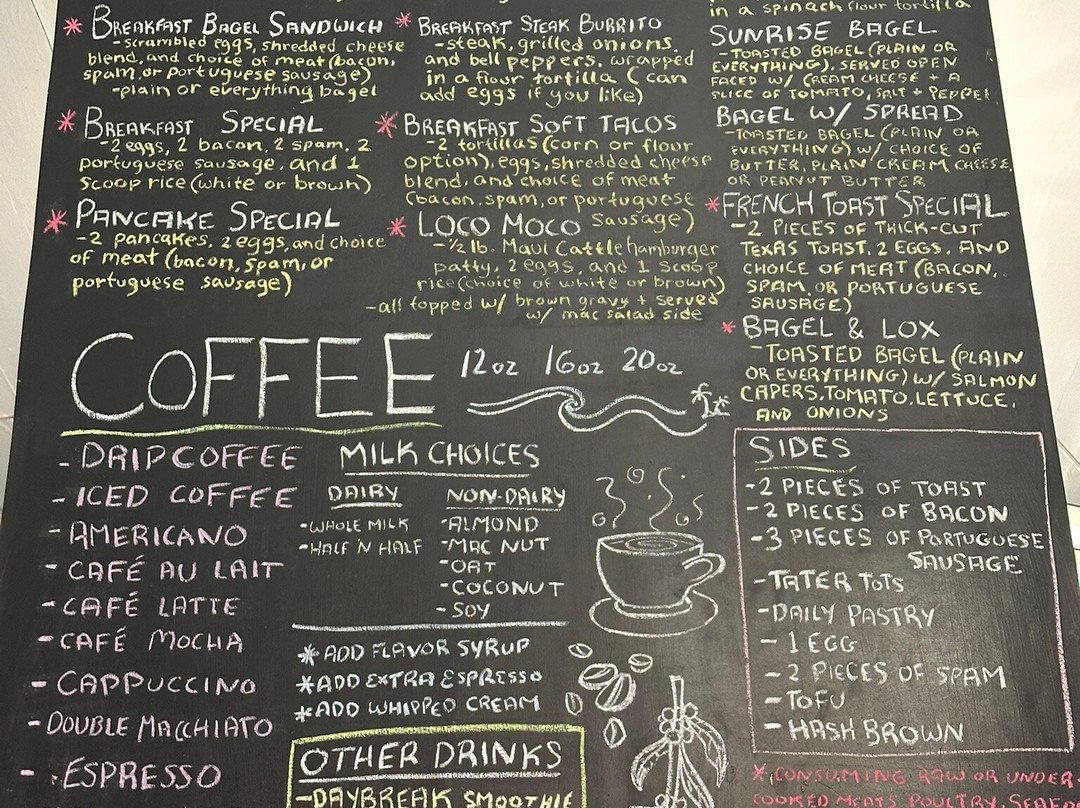 * BREAKFAST BAGEL SANDWICH
-scrambled eggs, shredded cheese
blend, and choice of meat (bacon,
spam, or portuguese sausage)
-plain or everything bagel
* BREAKFAST SPECIAL
-2 eggs, 2 bacon, 2 spam, 2
portuguese sausage, and 1
scoop rice (white or brown)
* PANCAKE SPECIAL
-2 pancakes, 2 eggs, and choice
of meat (bacon, spam, or
portuguese sausage)
* BREAKFAST STEAK BURRITO
-steak, grilled onions,
and bell peppers, wrapped
in a flour tortilla (can
add eggs if you like)
* BREAKFAST SOFT TACOS
-2 tortillas (corn or flour
option), eggs, shredded cheese
blend, and choice of meat
(bacon, spam, or portuguese
sausage)
* LOCO MOCO
-1/2 lb. Maui Cattle hamburger
patty, 2 eggs, and 1 scoop
rice (choice of white or brown)
-all topped w/ brown gravy + served
w/ mac salad side
in a spinach flour tortilla
SUNRISE BAGEL
-TOASTED BAGEL (PLAIN OR
EVERYTHING), SERVED OPEN
FACED W/ CREAM CHEESE + A
SLICE OF TOMATO, SALT + PEPPER
BAGEL W/ SPREAD
-TOASTED BAGEL (PLAIN OR
EVERYTHING) W/ CHOICE OF
BUTTER, PLAIN CREAM CHEESE,
OR PEANUT BUTTER
* FRENCH TOAST SPECIAL
-2 PIECES OF THICK-CUT
TEXAS TOAST, 2 EGGS, AND
CHOICE OF MEAT (BACON,
SPAM, OR PORTUGUESE
SAUSAGE)
* BAGEL & LOX
-TOASTED BAGEL (PLAIN
OR EVERYTHING) W/ SALMON
CAPERS, TOMATO, LETTUCE,
AND ONIONS
COFFEE 12oz 16oz 20oz
- DRIP COFFEE
- ICED COFFEE
- AMERICANO
- CAFÉ AU LAIT
- CAFÉ LATTE
- CAFÉ MOCHA
- CAPPUCCINO
- DOUBLE MACCHIATO
- ESPRESSO
MILK CHOICES
DAIRY
-WHOLE MILK
-HALF 'N HALF
NON-DAIRY
-ALMOND
-MAC NUT
-OAT
-COCONUT
-SOY
*ADD FLAVOR SYRUP
*ADD EXTRA ESPRESSO
*ADD WHIPPED CREAM
OTHER DRINKS
-DAYBREAK SMOOTHIE
SIDES
-2 PIECES OF TOAST
-2 PIECES OF BACON
-3 PIECES OF PORTUGUESE
SAUSAGE
-TATER TOTS
-DAILY PASTRY
-1 EGG
-2 PIECES OF SPAM
-TOFU
-HASH BROWN
*CONSUMING RAW OR UNDER-
COOKED MEATS, POULTRY,